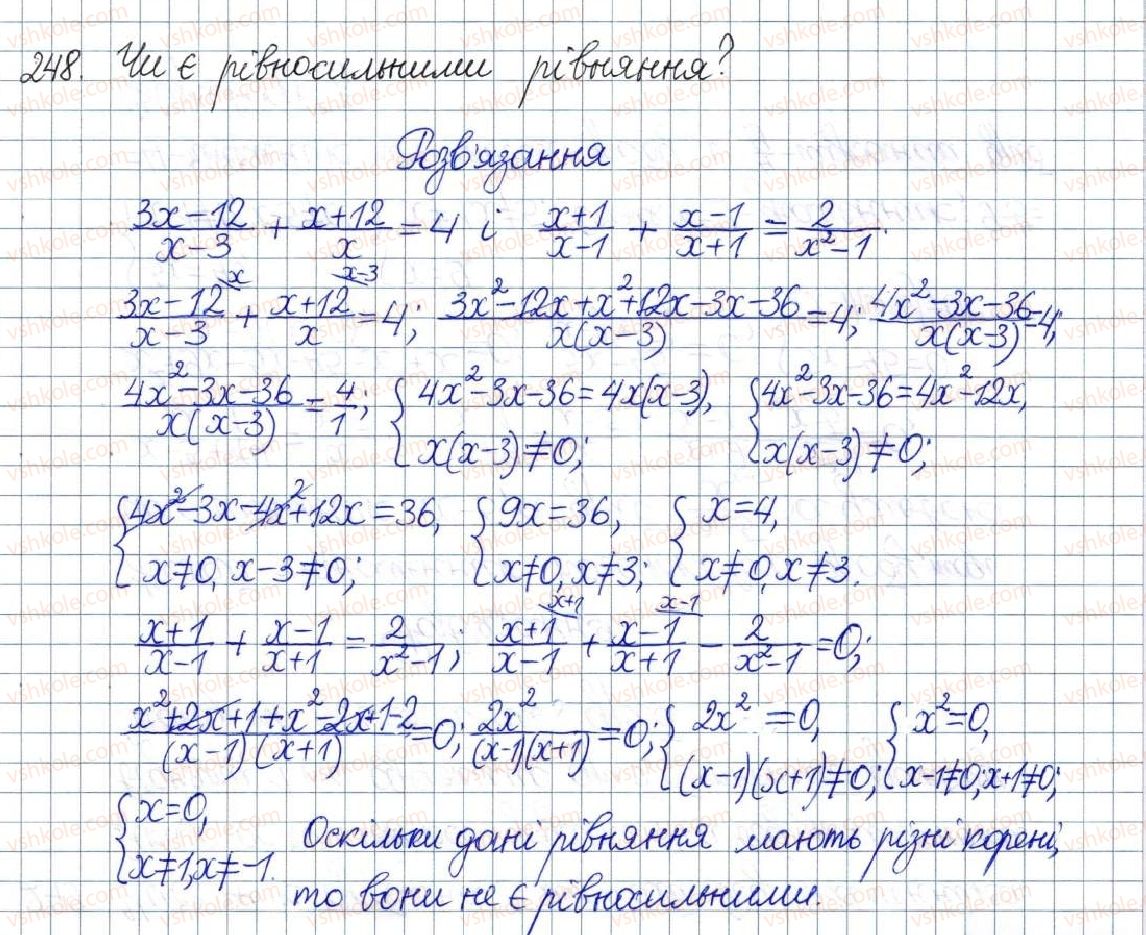 248. Чи є рівносильними рівняння?
Розв'язання
\frac{3x-12}{x-3} + \frac{x+12}{x} = 4 і \frac{x+1}{x-1} + \frac{x-1}{x+1} = \frac{2}{x^2-1}.
\frac{3x-12}{x-3}^{x} + \frac{x+12}{x}^{x-3} = 4; \frac{3x^2-12x+x^2+12x-3x-36}{x(x-3)} = 4; \frac{4x^2-3x-36}{x(x-3)} = 4;
\frac{4x^2-3x-36}{x(x-3)} = \frac{4}{1}; { 4x^2-3x-36=4x(x-3), x(x-3)≠0; { 4x^2-3x-36=4x^2-12x, x(x-3)≠0;
{ 4x^2-3x-4x^2+12x=36, x≠0, x-3≠0; { 9x=36, x≠0, x≠3; { x=4, x≠0, x≠3.
\frac{x+1}{x-1} + \frac{x-1}{x+1} = \frac{2}{x^2-1}; \frac{x+1}{x-1}^{x+1} + \frac{x-1}{x+1}^{x-1} - \frac{2}{x^2-1} = 0;
\frac{x^2+2x+1+x^2-2x+1-2}{(x-1)(x+1)} = 0; \frac{2x^2}{(x-1)(x+1)} = 0; { 2x^2=0, (x-1)(x+1)≠0; { x^2=0, x-1≠0; x+1≠0;
{ x=0, x≠1, x≠-1.
Оскільки дані рівняння мають різні корені,
то вони не є рівносильними.